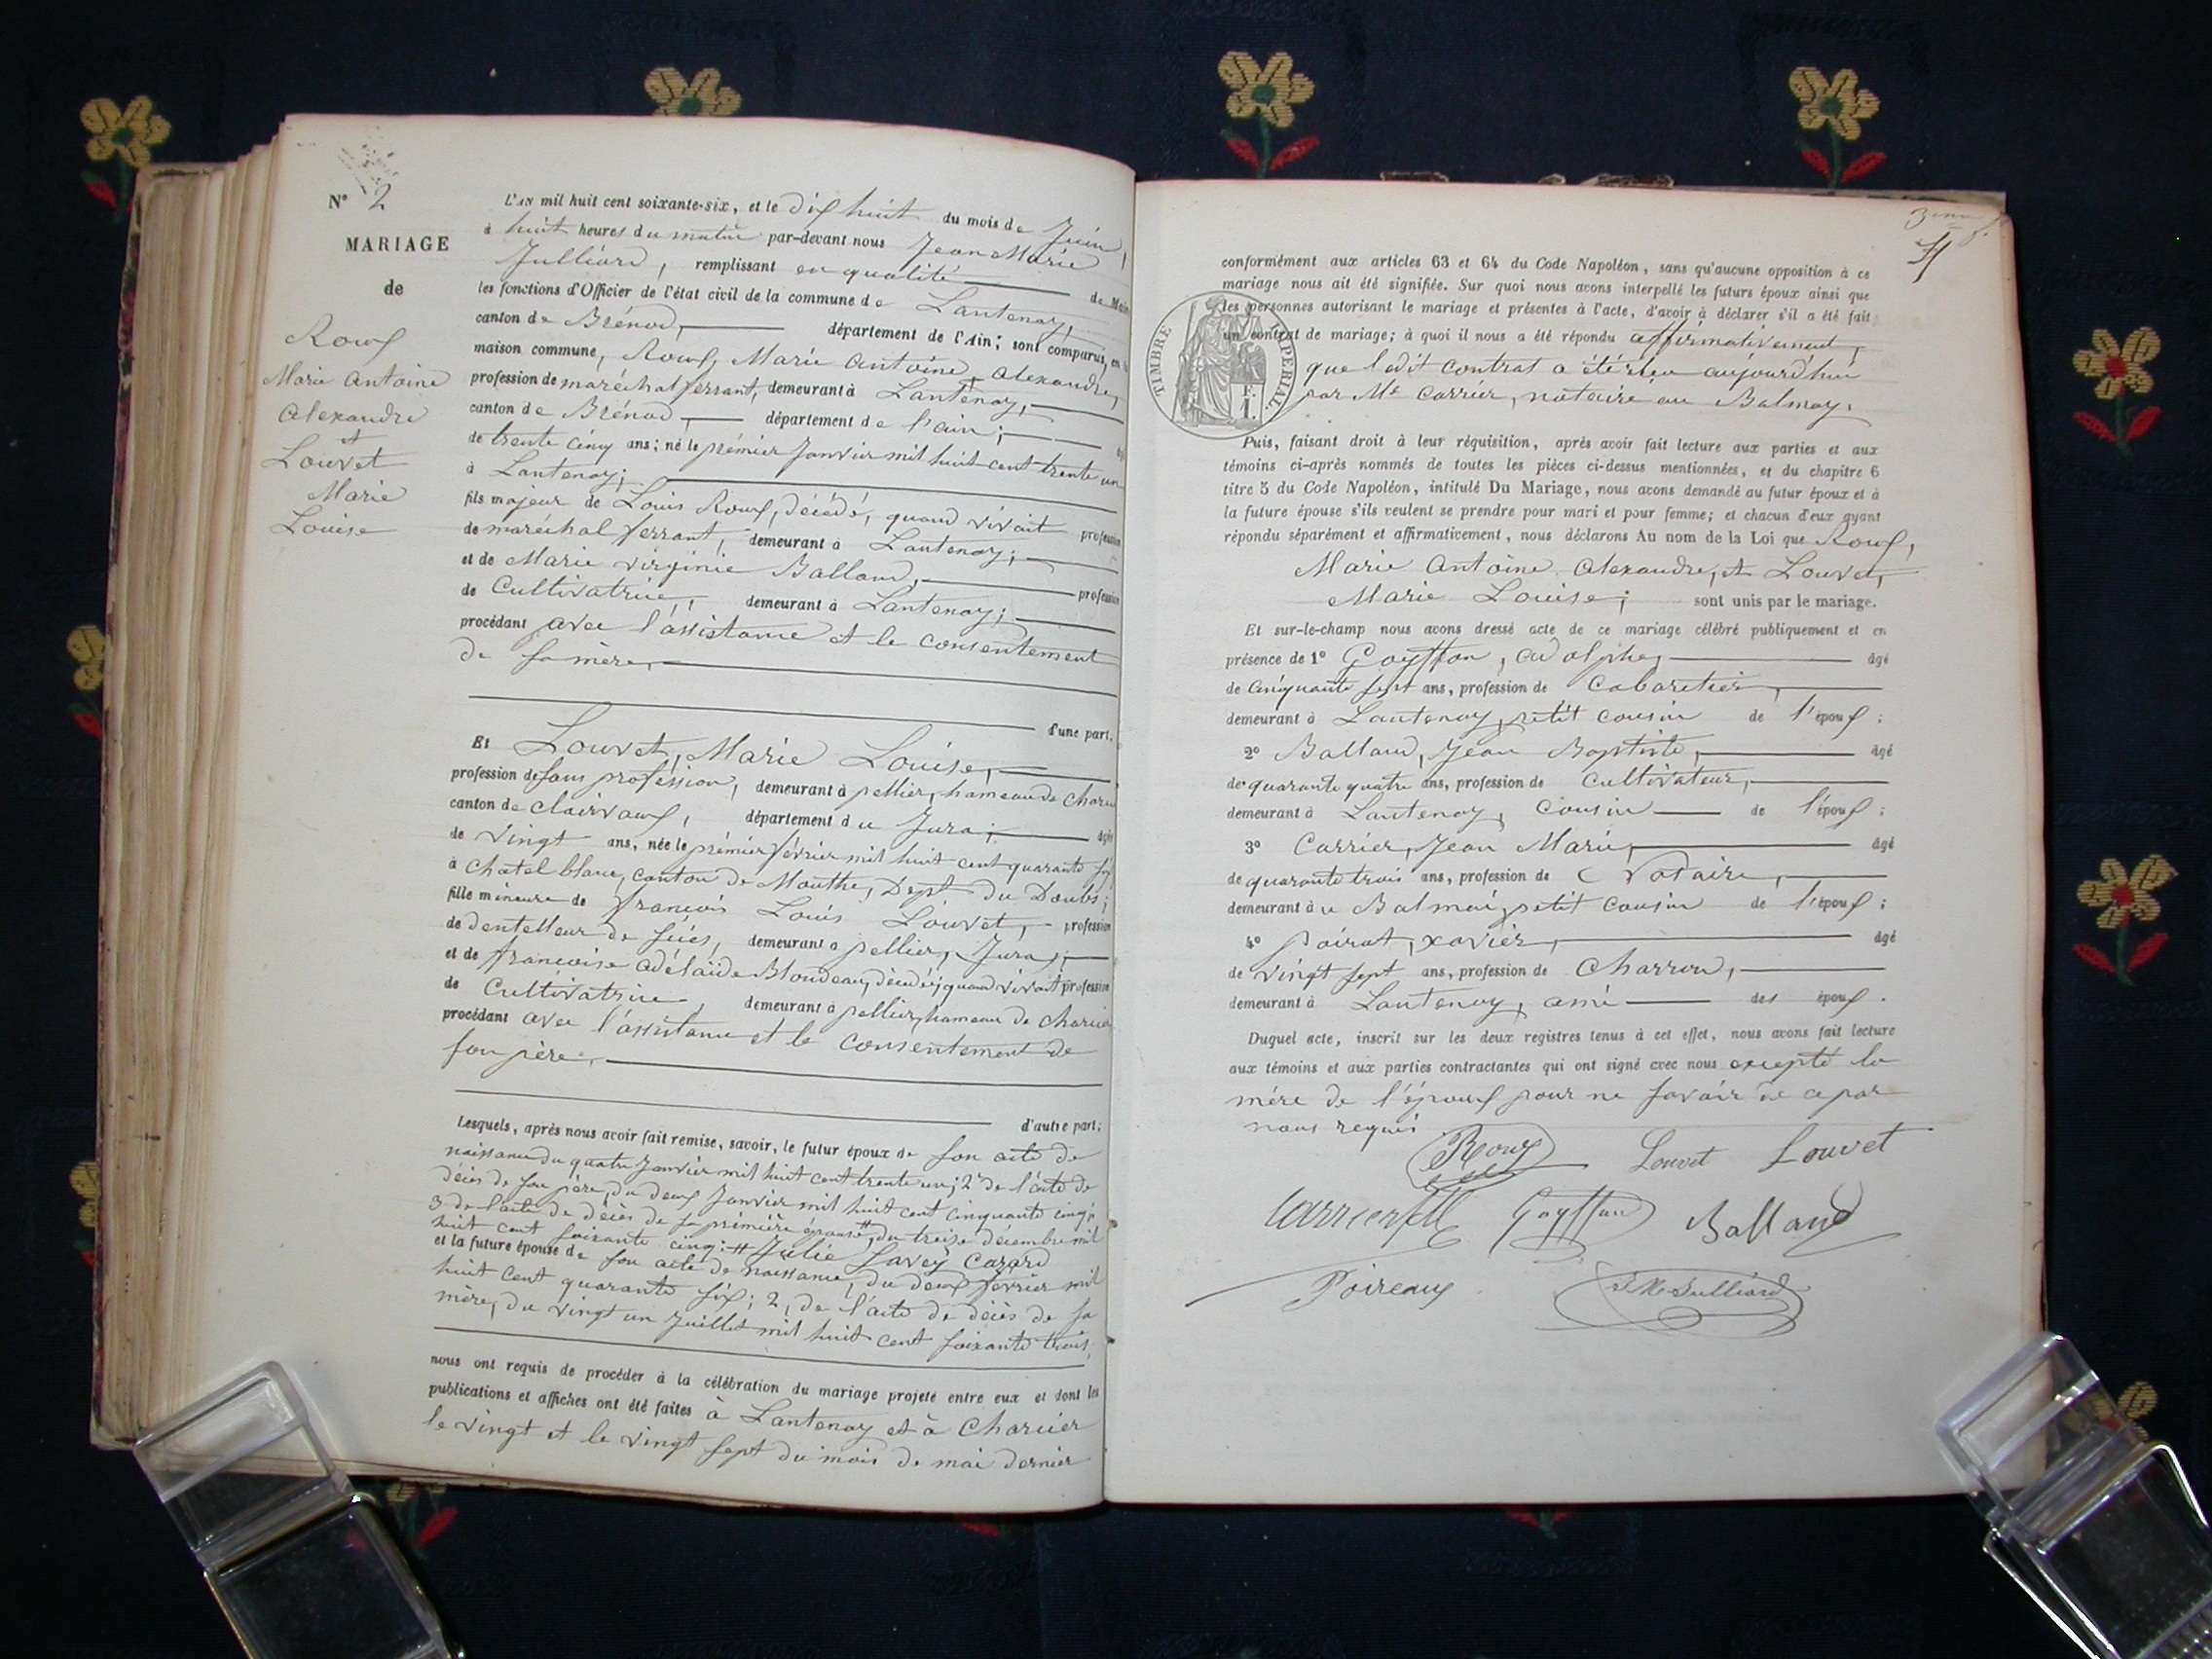 N° 2
MARIAGE
de
Roux
Marie Antoine
Alexandre
et
Louvet
Marie
Louise
L'AN mil huit cent soixante-six, et le dix huit du mois de Juin,
à huit heures du matin par-devant nous Jean Marie
Julliard, remplissant en qualité de Maire
les fonctions d'Officier de l'état civil de la commune de Lantenay,
canton de Brénod, département de l'Ain; sont comparus, en la
maison commune, Roux, Marie Antoine Alexandre,
profession de maréchal ferrant, demeurant à Lantenay,
canton de Brénod, département de l'ain; âgé
de trente cinq ans; né le prémier Janvier mil huit cent trente un
à Lantenay;
fils majeur de Louis Roux, décédé, quand vivait profession
de maréchal ferrant, demeurant à Lantenay;
et de Marie virginie Balland, profession
de Cultivatrice, demeurant à Lantenay;
procédant avec l'assistance et le consentement
de sa mère,
d'une part.
Et Louvet, Marie Louise,
profession de sans profession, demeurant à pellier, hameau de Charcier
canton de clairvaux, département du Jura; âgée
de vingt ans, née le prémier février mil huit cent quarante six
à Chatel blanc, canton de Mouthe, Dept du Doubs;
fille mineure de françois Louis Louvet, profession
de dentelleur de scies, demeurant à pellier, Jura;
et de françoise adélaïde Blondeau, décédée, quand vivait profession
de Cultivatrice, demeurant à pellier, hameau de Charcier
procédant avec l'assistance et le consentement de
son père,
d'autre part;
Lesquels, après nous avoir fait remise, savoir, le futur époux de son acte de
naissance du quatre Janvier mil huit cent trente un; 2° de l'acte de
décès de son père, du deux Janvier mil huit cent cinquante cinq;
3 de l'acte de décès de sa prémière épouse # du treize décembre mil
huit cent soixante cinq: # Julie Savey Cazard
et la future épouse de son acte de naissance, du deux février mil
huit cent quarante six; 2, de l'acte de décès de sa
mère, du vingt un Juillet mil huit cent soixante trois,
nous ont requis de procéder à la célébration du mariage projeté entre eux et dont les
publications et affiches ont été faites à Lantenay et à Charcier
le vingt et le vingt sept du mois de mai dernier
conformément aux articles 63 et 64 du Code Napoléon, sans qu'aucune opposition à ce
mariage nous ait été signifiée. Sur quoi nous avons interpellé les futurs époux ainsi que
les personnes autorisant le mariage et présentes à l'acte, d'avoir à déclarer s'il a été fait
un contrat de mariage; à quoi il nous a été répondu affirmativement,
TIMBRE IMPERIAL.
1 F.
que ledit contrat a été réçu aujourd'hui
par Me Carrier, notaire au Balmay.
Puis, faisant droit à leur réquisition, après avoir fait lecture aux parties et aux
témoins ci-après nommés de toutes les pièces ci-dessus mentionnées, et du chapitre 6
titre 5 du Code Napoléon, intitulé Du Mariage, nous avons demandé au futur époux et à
la future épouse s'ils veulent se prendre pour mari et pour femme; et chacun d'eux ayant
répondu séparément et affirmativement, nous déclarons Au nom de la Loi que Roux,
Marie Antoine Alexandre, et Louvet,
Marie Louise; sont unis par le mariage.
Et sur-le-champ nous avons dressé acte de ce mariage célébré publiquement et en
présence de 1° Goyffon, adolphe, âgé
de cinquante sept ans, profession de Cabaretier,
demeurant à Lantenay, petit cousin de l'époux;
2° Balland, Jean Baptiste, âgé
de quarante quatre ans, profession de Cultivateur,
demeurant à Lantenay, cousin de l'époux;
3° Carrier, Jean Marie, âgé
de quarante trois ans, profession de Notaire,
demeurant au Balmai, petit cousin de l'époux;
4° poirat, xavier, âgé
de vingt sept ans, profession de Charron,
demeurant à Lantenay, ami des époux.
Duquel acte, inscrit sur les deux registres tenus à cet effet, nous avons fait lecture
aux témoins et aux parties contractantes qui ont signé avec nous excepté la
mère de l'époux pour ne savoir de ce par
nous requis
Roux Louvet Louvet
Carrier Goyffon Balland
Poireaux J M Julliard